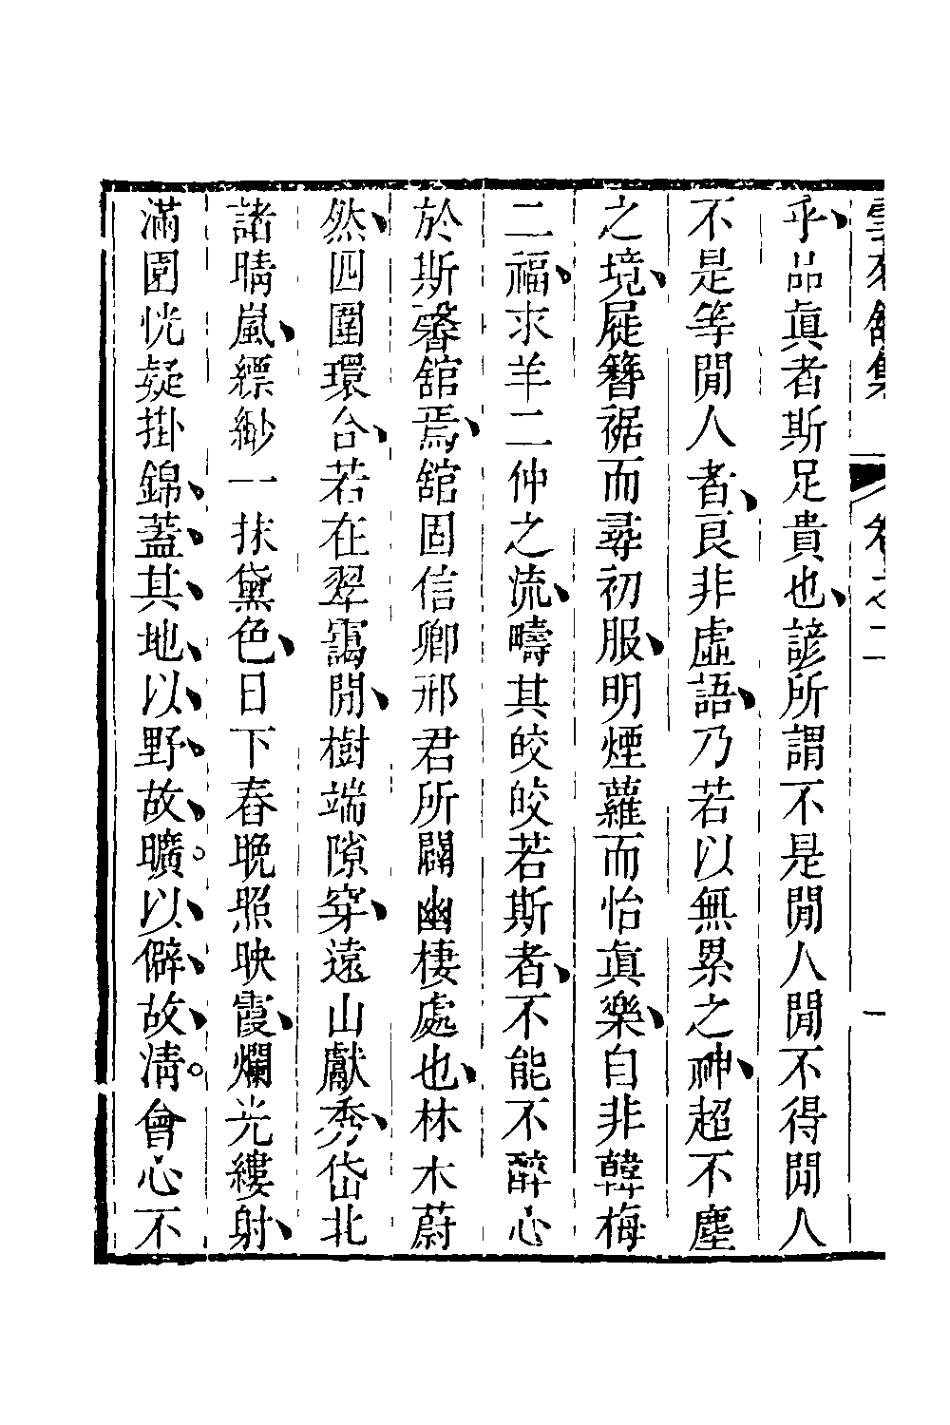 乎、品眞者斯足貴也、諺所謂不是閒人閒不得閒人
不是等閒人者、良非虛語、乃若以無累之神、超不塵
之境、屣簪裾而尋初服、明煙蘿而怡眞樂、自非韓梅
二福、求羊二仲之流、疇其皎皎若斯者、不能不醉心
於斯馨舘焉、舘固信卿邢君所闢幽棲處也、林木蔚
然、四圍環合、若在翠靄閒、樹端隙穿、遠山獻秀、岱北
諸晴嵐、縹緲一抹黛色、日下舂晚照映霞、爛光縷射、
滿園恍疑掛錦、蓋、其、地、以、野、故、曠。以、僻、故、淸。會心不